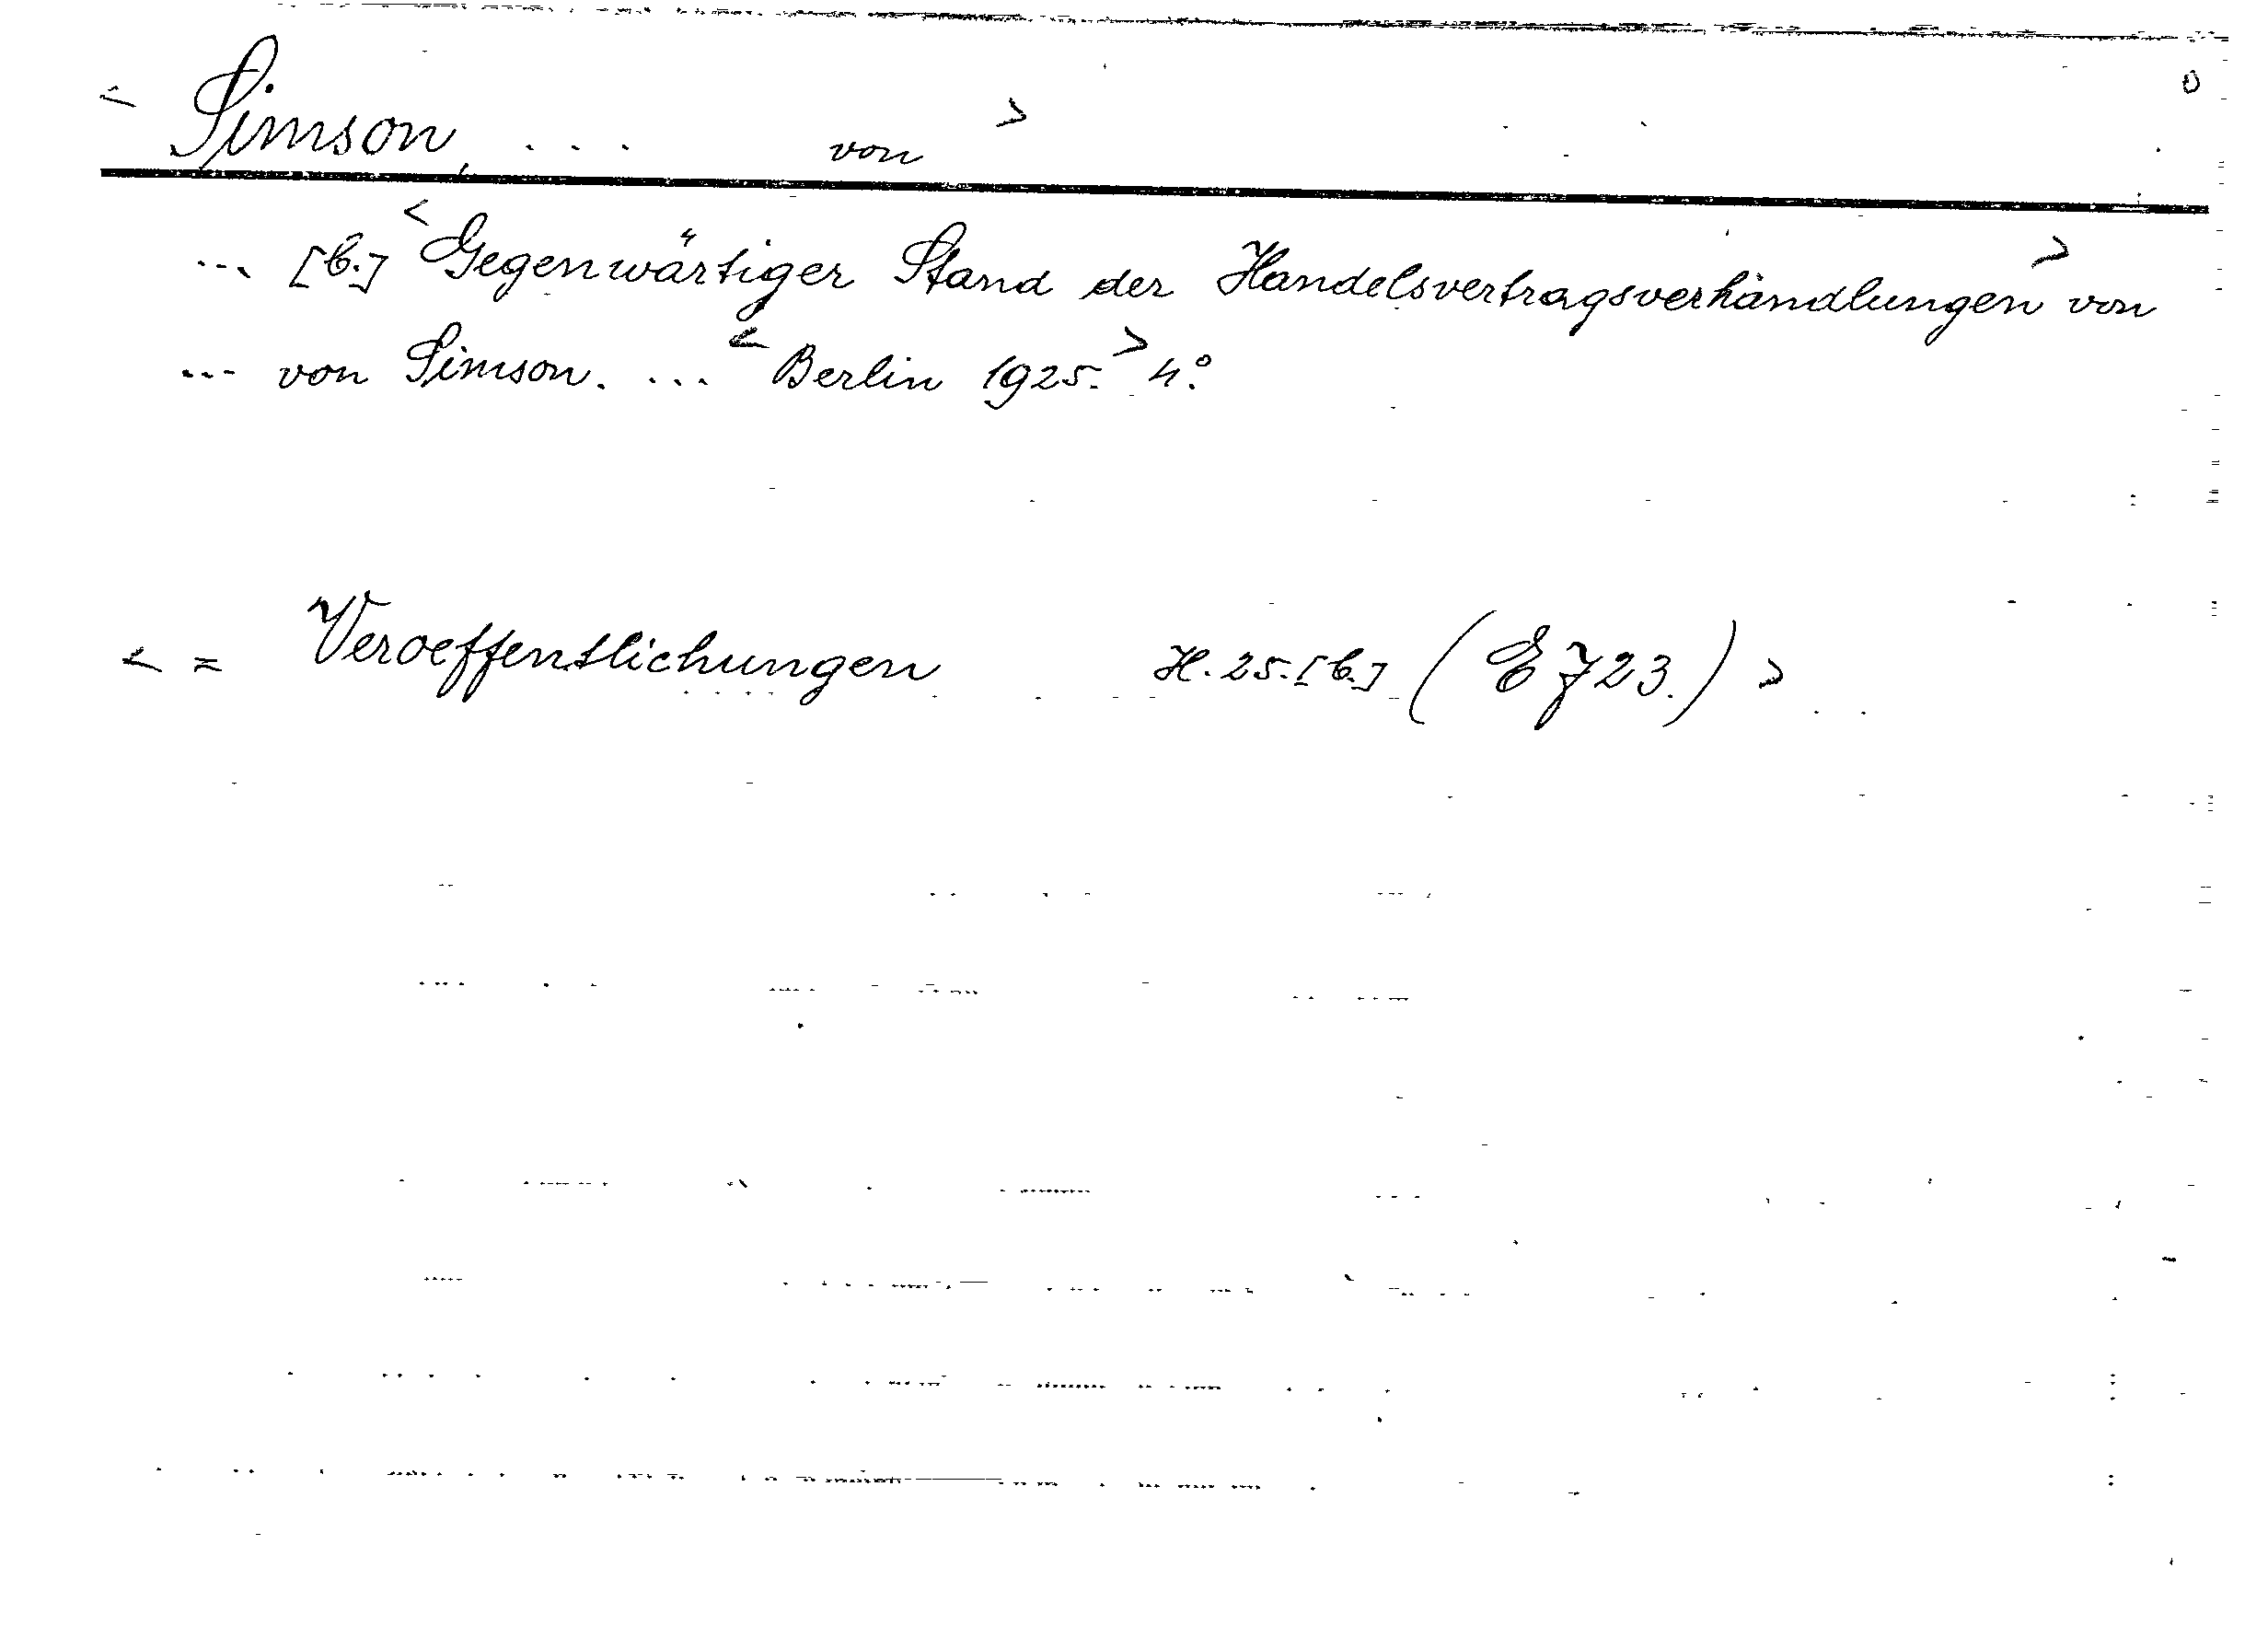 < Simson, ... von >
... [b.] < Gegenwärtiger Stand der Handelsvertragsverhandlungen > von
... von Simson. ... < Berlin 1925. > 4°.
< = Veroeffentlichungen H. 25. [b.] (E 723.) >